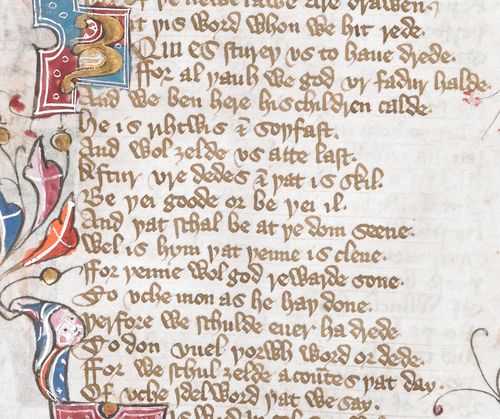 of þe newe lawe ase drawen
at þis word whon we hit rede.
QUI ES stureþ us to haue drede.
ffor al þauh we god vr fadur halde.
And we ben here his children calde.
he is rihtwis & soþfast.
And wol ȝelde vs atte last.
Aftur vre dedes & þat is skil.
Be þei goode or be þei il.
And þat schal be at þe dom seene.
Wel is hym þat þenne is clene.
ffor þenne wol god rewarde sone.
To vche mon as he haþ done.
þerfore we schulde euer ha drede.
To don vuel þorwh word or dede.
ffor we schul ȝelde a coūtes þat day.
Of vche ydel word þat we say.